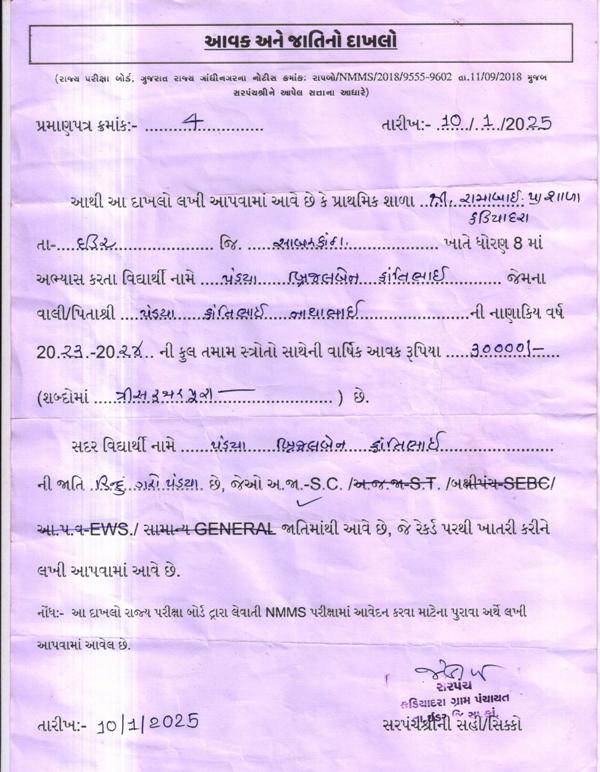 આવક અને જાતિનો દાખલો
(રાજ્ય પરીક્ષા બોર્ડ, ગુજરાત રાજ્ય ગાંધીનગરના નોટીસ ક્રમાંક: રાપબો/NMMS/2018/9555-9602 તા.11/09/2018 મુજબ
સરપંચશ્રીને આપેલ સત્તાના આધારે)
પ્રમાણપત્ર ક્રમાંક:- 4 તારીખ:- 10/1/2025
આથી આ દાખલો લખી આપવામાં આવે છે કે પ્રાથમિક શાળા શ્રી. રામબાઈ પ્રા શાળા
કડિયાદરા
તા- ઇડર જિ. સાબરકાંઠા ખાતે ધોરણ 8 માં
અભ્યાસ કરતા વિદ્યાર્થી નામે પંડ્યા બ્રિજલબેન કાંતિભાઈ જેમના
વાલી/પિતાશ્રી પંડ્યા કાંતિભાઈ નાથાભાઈ ની નાણાકિય વર્ષ
20૨૩-20૨૪ ની કુલ તમામ સ્ત્રોતો સાથેની વાર્ષિક આવક રૂપિયા 30000/-
(શબ્દોમાં ત્રીસ હજાર પુરા ) છે.
સદર વિદ્યાર્થી નામે પંડ્યા બ્રિજલબેન કાંતિભાઈ
ની જાતિ હિન્દુ ગરો પંડ્યા છે, જેઓ અ.જા.-S.C. /અ.જ.જા-S.T. /બક્ષીપંચ-SEBC/
આ.પ.વ-EWS./ સામાન્ય GENERAL જાતિમાંથી આવે છે, જે રેકર્ડ પરથી ખાતરી કરીને
લખી આપવામાં આવે છે.
નોંધ:- આ દાખલો રાજ્ય પરીક્ષા બોર્ડ દ્વારા લેવાતી NMMS પરીક્ષામાં આવેદન કરવા માટેના પુરાવા અર્થે લખી
આપવામાં આવેલ છે.
સરપંચ
કડિયાદરા ગ્રામ પંચાયત
તારીખ:- 10/1/2025 સરપંચશ્રીની સહી/સિક્કો